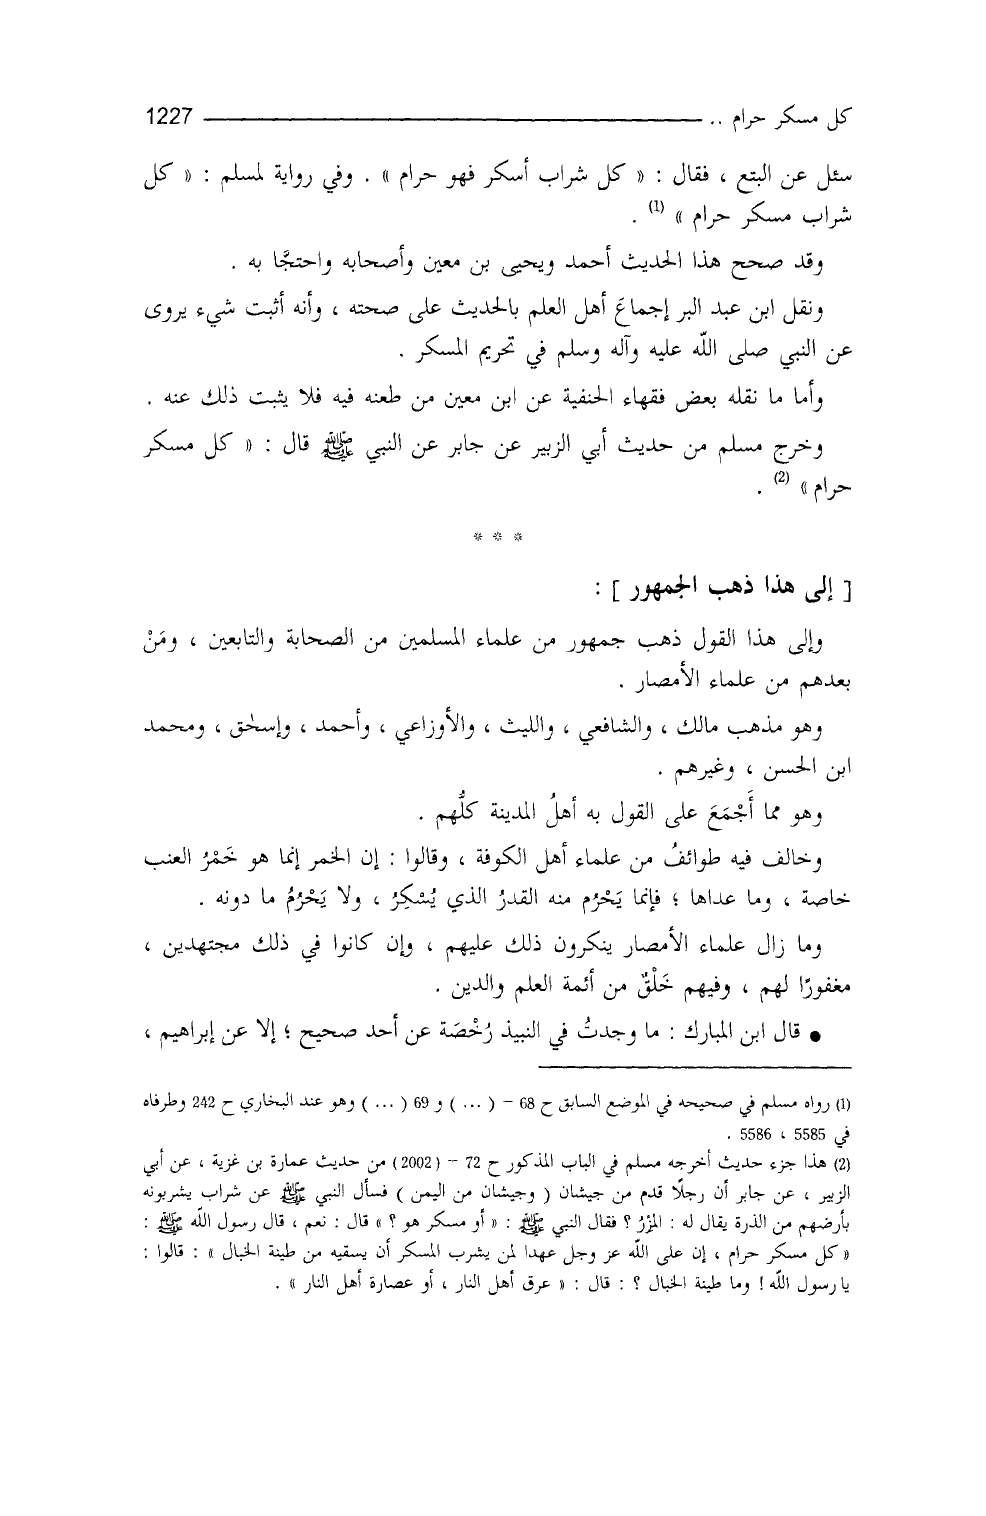 كل مسكر حرام .. 1227
سئل عن البتع ، فقال : « كل شراب أسكر فهو حرام » . وفي رواية لمسلم : « كل
شراب مسكر حرام » (1) .
وقد صحح هذا الحديث أحمد ويحيى بن معين وأصحابه واحتجَّا به .
ونقل ابن عبد البر إجماعَ أهل العلم بالحديث على صحته ، وأنه أثبت شيء يروى
عن النبي صلى الله عليه وآله وسلم في تحريم المسكر .
وأما ما نقله بعض فقهاء الحنفية عن ابن معين من طعنه فيه فلا يثبت ذلك عنه .
وخرج مسلم من حديث أبي الزبير عن جابر عن النبي ﷺ قال : « كل مسكر
حرام » (2) .
* * *
[ إلى هذا ذهب الجمهور ] :
وإلى هذا القول ذهب جمهور من علماء المسلمين من الصحابة والتابعين ، ومَنْ
بعدهم من علماء الأمصار .
وهو مذهب مالك ، والشافعي ، والليث ، والأوزاعي ، وأحمد ، وإسحٰق ، ومحمد
ابن الحسن ، وغيرهم .
وهو مما أَجْمَعَ على القول به أهلُ المدينة كلُّهم .
وخالف فيه طوائفُ من علماء أهل الكوفة ، وقالوا : إن الخمر إنما هو خَمْرُ العنب
خاصة ، وما عداها ؛ فإنما يَحْرُم منه القدرُ الذي يُسْكِرُ ، ولا يَحْرُمُ ما دونه .
وما زال علماء الأمصار ينكرون ذلك عليهم ، وإن كانوا في ذلك مجتهدين ،
مغفورًا لهم ، وفيهم خَلْقٌ من أئمة العلم والدين .
● قال ابن المبارك : ما وجدتُ في النبيذ رُخْصَة عن أحد صحيح ؛ إلا عن إبراهيم ،
(1) رواه مسلم في صحيحه في الموضع السابق ح 68 - ( ... ) و 69 ( ... ) وهو عند البخاري ح 242 وطرفاه
في 5585 ، 5586 .
(2) هذا جزء حديث أخرجه مسلم في الباب المذكور ح 72 - (2002) من حديث عمارة بن غزية ، عن أبي
الزبير ، عن جابر أن رجلًا قدم من جيشان ( وجيشان من اليمن ) فسأل النبي ﷺ عن شراب يشربونه
بأرضهم من الذرة يقال له : المِزْرُ ؟ فقال النبي ﷺ : « أو مسكر هو ؟ » قال : نعم ، قال رسول الله ﷺ :
« كل مسكر حرام ، إن على الله عز وجل عهدا لمن يشرب المسكر أن يسقيه من طينة الخبال » : قالوا :
يا رسول الله ! وما طينة الخبال ؟ : قال : « عرق أهل النار ، أو عصارة أهل النار » .